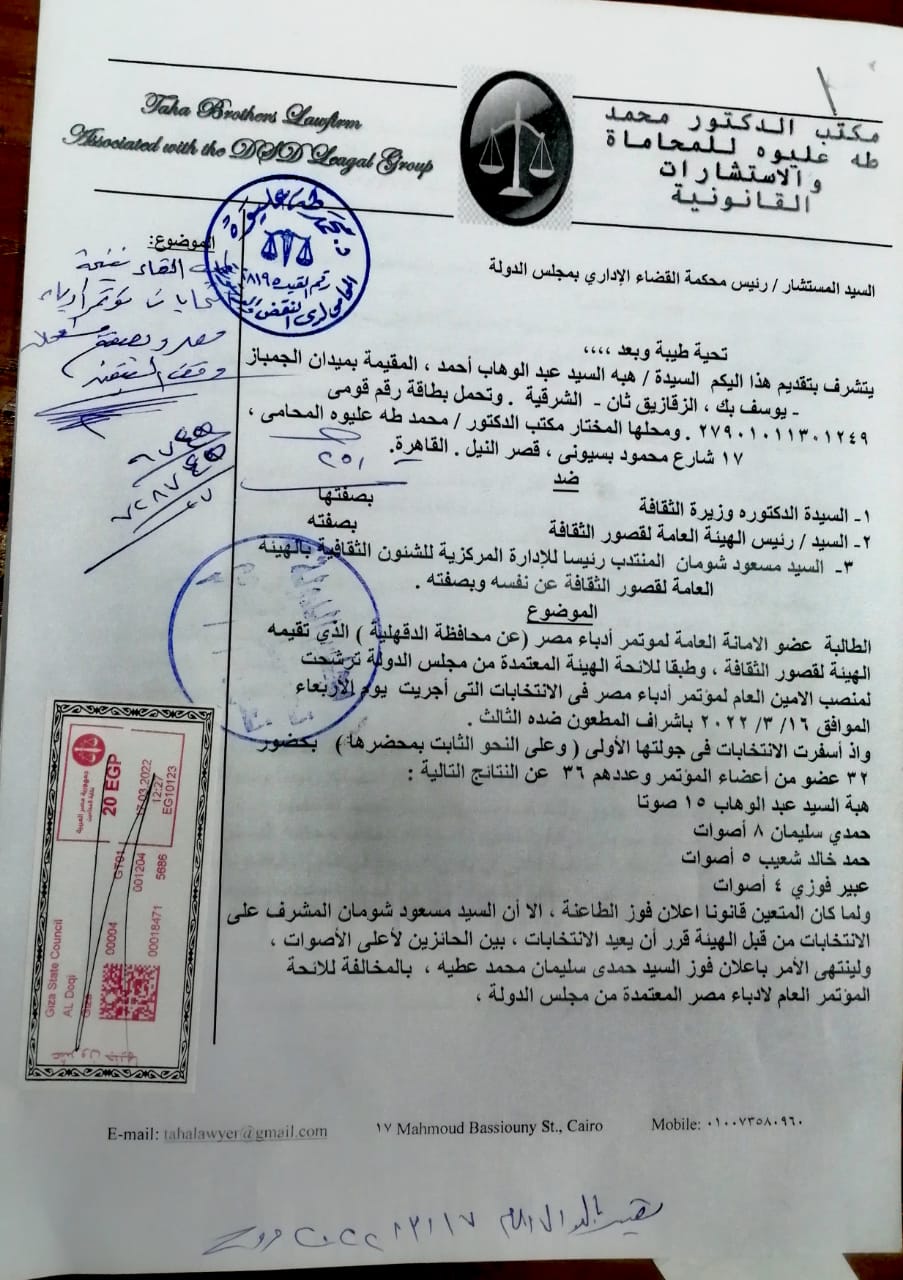 Taha Brothers Lawfirm
Associated with the DSD Leagal Group
مكتب الدكتور محمد
طه عليوه للمحاماة
والاستشارات
القانونية
السيد المستشار / رئيس محكمة القضاء الإداري بمجلس الدولة
الموضوع:
تحية طيبة وبعد ،،،،
يتشرف بتقديم هذا اليكم السيدة / هبه السيد عبد الوهاب أحمد ، المقيمة بميدان الجمباز
- يوسف بك ، الزقازيق ثان - الشرقية . وتحمل بطاقة رقم قومى
٢٧٩٠١٠١١٣٠١٢٤٩ . ومحلها المختار مكتب الدكتور / محمد طه عليوه المحامى ،
١٧ شارع محمود بسيونى ، قصر النيل . القاهرة.
ضد
١- السيدة الدكتوره وزيرة الثقافة بصفتها
٢- السيد / رئيس الهيئة العامة لقصور الثقافة بصفته
٣- السيد مسعود شومان المنتدب رئيسا للإدارة المركزية للشئون الثقافية بالهيئة
العامة لقصور الثقافة عن نفسه وبصفته .
الموضوع
الطالبة عضو الامانة العامة لموتمر أدباء مصر (عن محافظة الدقهلية ) الذي تقيمه
الهيئة لقصور الثقافة ، وطبقا للائحة الهيئة المعتمدة من مجلس الدولة ترشحت
لمنصب الامين العام لمؤتمر أدباء مصر فى الانتخابات التى أجريت يوم الأربعاء
الموافق ١٦/ ٣/ ٢٠٢٢ باشراف المطعون ضده الثالث .
واذ أسفرت الانتخابات فى جولتها الأولى ( وعلى النحو الثابت بمحضرها ) بحضور
٣٢ عضو من أعضاء المؤتمر وعددهم ٣٦ عن النتائج التالية :
هبة السيد عبد الوهاب ١٥ صوتا
حمدي سليمان ٨ أصوات
حمد خالد شعيب ٥ أصوات
عبير فوزي ٤ أصوات
ولما كان المتعين قانونا اعلان فوز الطاعنة ، الا أن السيد مسعود شومان المشرف على
الانتخابات من قبل الهيئة قرر أن يعيد الانتخابات ، بين الحائزين لأعلى الأصوات ،
ولينتهى الأمر باعلان فوز السيد حمدى سليمان محمد عطيه ، بالمخالفة للائحة
المؤتمر العام لادباء مصر المعتمدة من مجلس الدولة ،
جمهورية مصر العربية
20 EGP
17.03.2022
12:27
EG10123
GT01
001204
5686
00004
00018471
Giza State Council
AL Doqi
Giza
E-mail: tahalawyer@gmail.com
١٧ Mahmoud Bassiouny St., Cairo
Mobile: ٠١٠٠٧٣٥٨٠٩٦٠